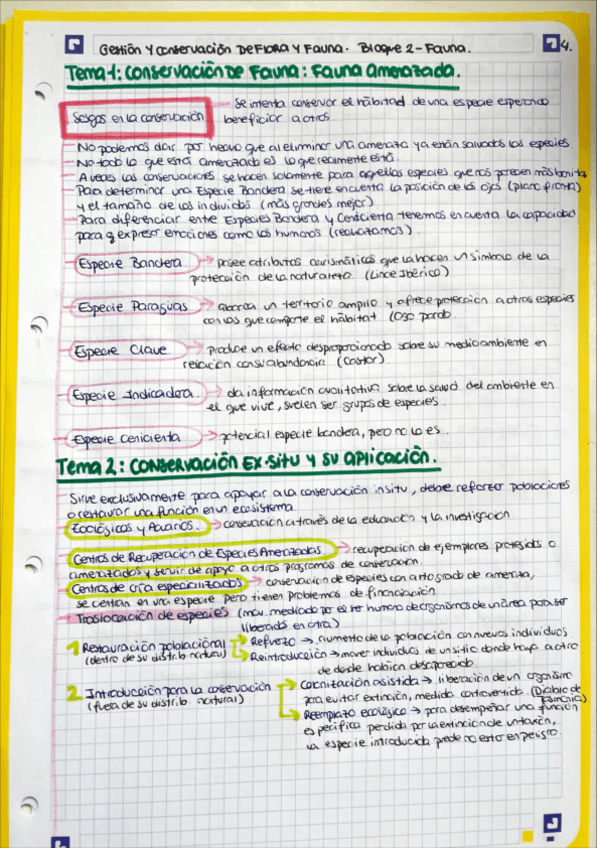 Gestión y Conservación De Flora y Fauna. Bloque 2 - Fauna. 4.
Tema 1: Conservación De Fauna: Fauna amenazada.
Sesgos en la conservación → se intenta conservar el hábitat de una especie esperando
beneficiar a otros
- No podemos dar por hecho que al eliminar una amenaza ya están salvadas las especies
- No todo lo que está amenazado es lo que realmente está.
- A veces las conservaciones se hacen solamente para aquellas especies que nos parecen más bonitas
- Para determinar una Especie Bandera se tiene en cuenta la posición de los ojos (plano frontal)
y el tamaño de los individuos (más grandes mejor)
- Para diferenciar entre Especies Bandera y Cenicienta tenemos en cuenta la capacidad
para q expresar emociones como los humanos (
Especie Bandera → posee atributos carismáticos que la hacen un símbolo de la
protección de la naturaleza (Lince Ibérico)
Especie Paraguas → abarca un territorio amplio y ofrece protección a otras especies
con las que comparte el hábitat (Oso pardo
Especie Clave → produce un efecto desproporcionado sobre su medio ambiente en
relación con su abundancia (Castor)
Especie Indicadora → da información cualitativa sobre la salud del ambiente en
el que vive, suelen ser grupos de especies.
Especie Cenicienta → potencial especie bandera, pero no lo es.
Tema 2: Conservación Ex-situ y su aplicación.
Sirve exclusivamente para apoyar a la conservación in situ, debe reforzar poblaciones
o restaurar una función en un ecosistema.
Zoológicos y Acuarios. → conservación a través de la educación y la investigación
Centros de Recuperación de Especies Amenazadas. → recuperación de ejemplares protegidos o
amenazados y servir de apoyo a otros programas de conservación.
Centros de cría especializados → conservación de especies con alto grado de amenaza,
se centran en una especie pero tienen problemas de financiación
- Traslocación de especies (mov. mediado por el ser humano de organismos de un área para ser
liberado en otra)
1 Restauración poblacional → Refuerzo → aumento de la población con nuevos individuos
(dentro de su distrib. natural) → Reintroducción → mover individuos de un sitio donde haya a otro
de donde habían desaparecido
2 Introducción para la conservación → Colonización asistida → liberación de un organismo
(fuera de su distrib. natural) para evitar extinción, medida controvertida. (Diablo de
Tasmania)
→ Reemplazo ecológico → para desempeñar una función
específica perdida por la extinción de un taxón,
la especie introducida puede no estar en peligro.